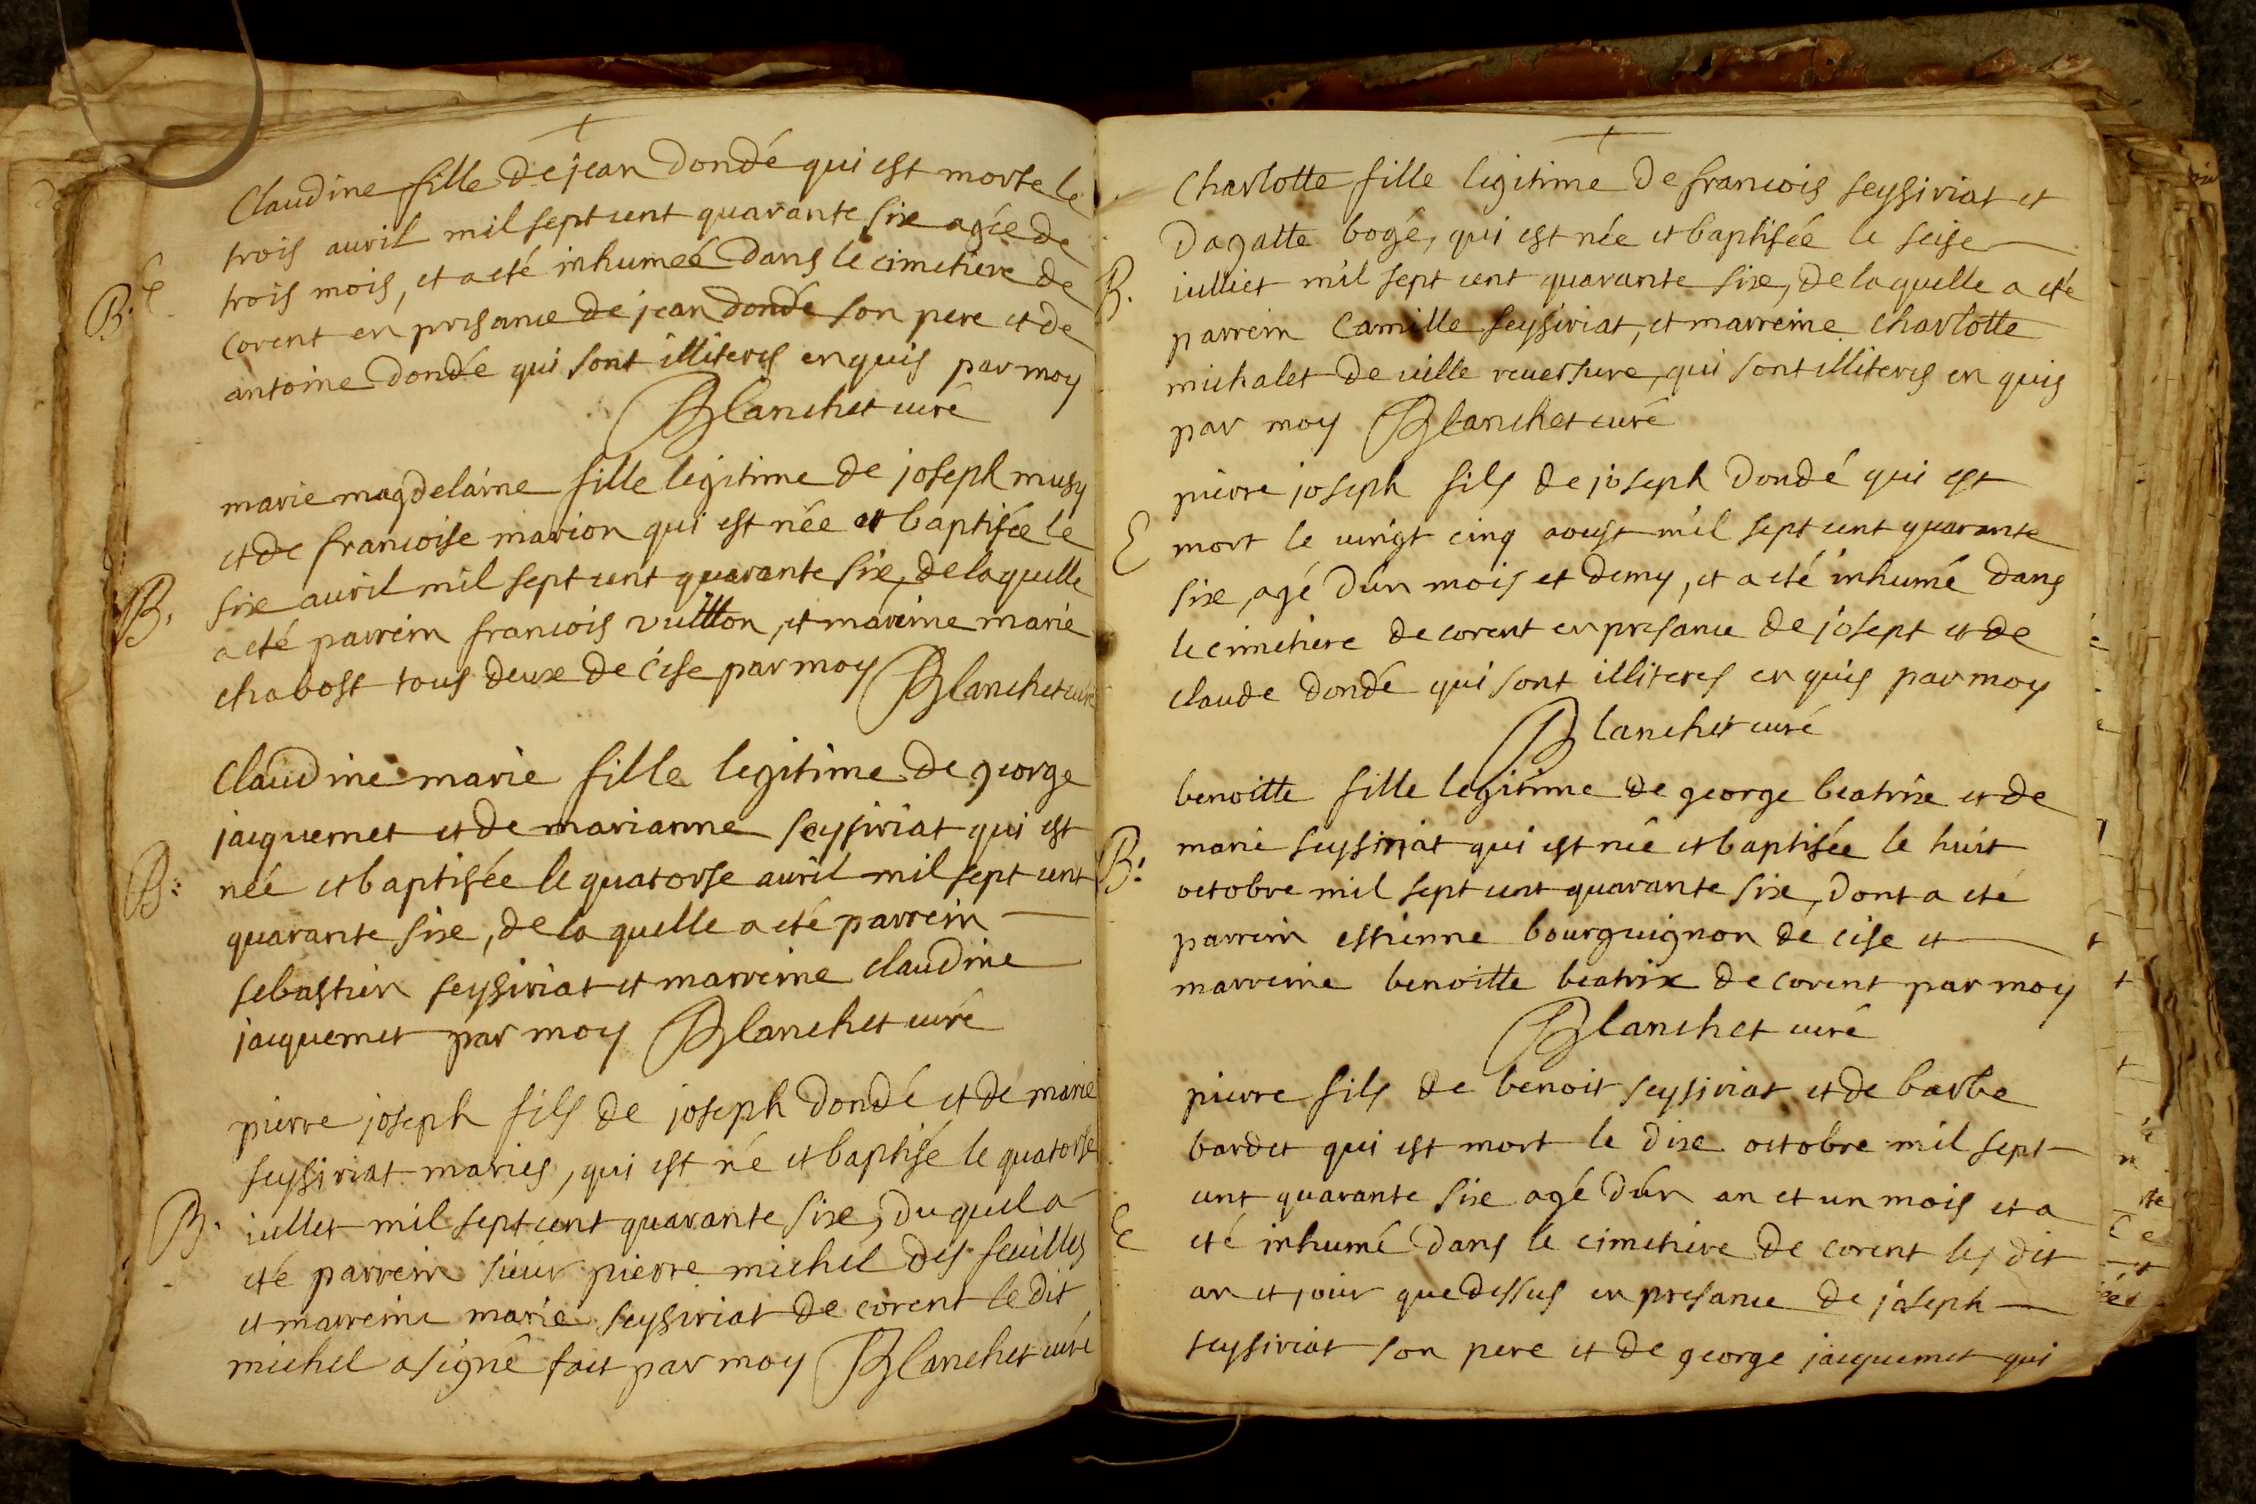 Claudine fille de jean dondé qui est morte le
trois auril mil sept cent quarante sixe agée de
trois mois, et a eté inhumeé dans le cimetiere de
corent en presance de jean dondé son pere et de
antoine dondé qui sont illiteres enquis par moy
Blanchet curé
marie magdelaine fille legitime de joseph musy
et de francoise marion qui est née et baptisée le
sixe auril mil sept cent quarante sixe, de laquelle
a eté parrein francois vuillon, et mareine marie
chabost tous deux de cise par moy Blanchet curé
B.
Claudine marie fille legitime de george
jacquemet et de marianne seysiriat qui est
née et baptisée le quatorse auril mil sept cent
quarante sixe, de la quelle a eté parrein
sebastien seysiriat et marreine claudine
jacquemet par moy Blanchet curé
B:
pierre joseph fils de joseph dondé et de marie
seysiriat maries, qui est né et baptisé le quatorse
iullet mil sept cent quarante sixe, du quel a
eté parrein sieur pierre michel des feuilles
et marreine marie seysiriat de corent le dit
michel a signé fait par moy Blanchet curé
B.
Charlotte fille legitime de francois seysiriat et
dagatte bogé, qui est née et baptisée le seise
iulliet mil sept cent quarante sixe, de laquelle a eté
parrein Camille seysiriat, et marreine charlotte
michalet de uille reuersure, qui sont illiteres en quis
par moy Blanchet curé
B.
pierre joseph fils de joseph dondé qui est
mort le uingt cinq aoust mil sept cent quarante
sixe, agé d'un mois et demy, et a eté inhumé dans
le cimetiere de corent en presance de josept et de
claude dondé qui sont illiteres en quis par moy
Blanchet curé
E
benoitte fille legitime de george beatrixe et de
marie seysiriat qui est née et baptisée le huit
octobre mil sept cent quarante sixe, dont a eté
parrein estienne bourguignon de cise et
marreine benoitte beatrix de corent par moy
Blanchet curé
B:
pierre fils de benoit seysiriat et de barbe
bardet qui est mort le dixe octobre mil sept
cent quarante sixe agé d'un an et un mois et a
eté inhumé dans le cimetiere de corent les dit
an et jour que dessus en presance de joseph
seysiriat son pere et de george jacquemet qui
E